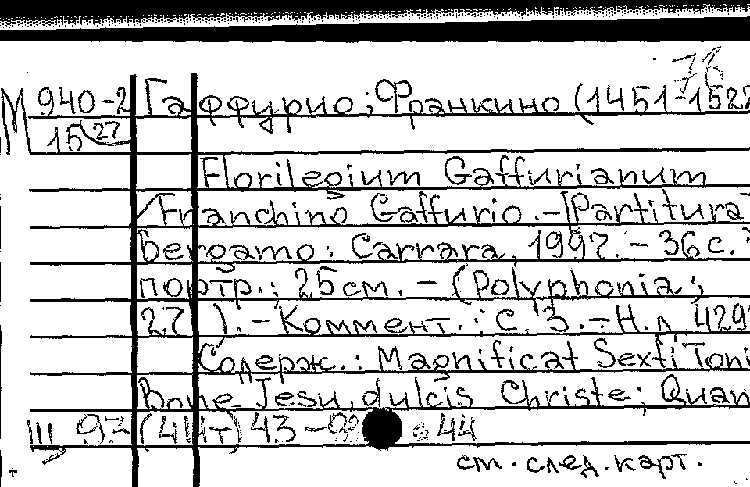 78
М 940-2 Гаффурио, Франкино (1451-1522
15 27
Florilegium Gaffurianum
/Franchino Gaffurio.-[Partitura
Bergamo: Carrara, 1997.- 36 с.
портр.; 25 см. - (Polyphonia;
27 ). - Коммент.: С. 3. - Н.д. 429
Содерж.: Magnificat Sexti Toni
Bone Jesu, dulcis Christe; Quan
Ш 97 (4Нт) 43-9 44
см. след. карт.